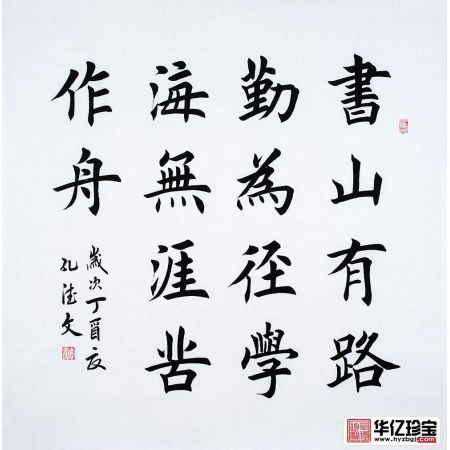 書山有路
勤為径學
海無涯苦
作舟
歲次丁酉夏
孔德文
华亿珍宝
www.hyzbgj.com